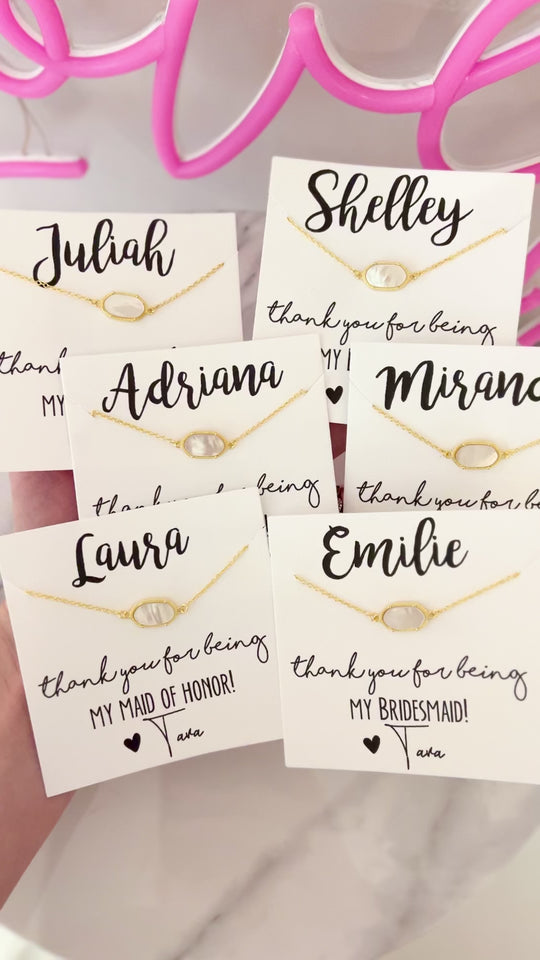 Juliah
thank
MY
Shelley
thank you for being
MY
Adriana
thank you for being
Miranc
thank you for be
Laura
thank you for being
MY MAID OF HONOR!
Tara
Emilie
thank you for being
MY BRIDESMAID!
Tara